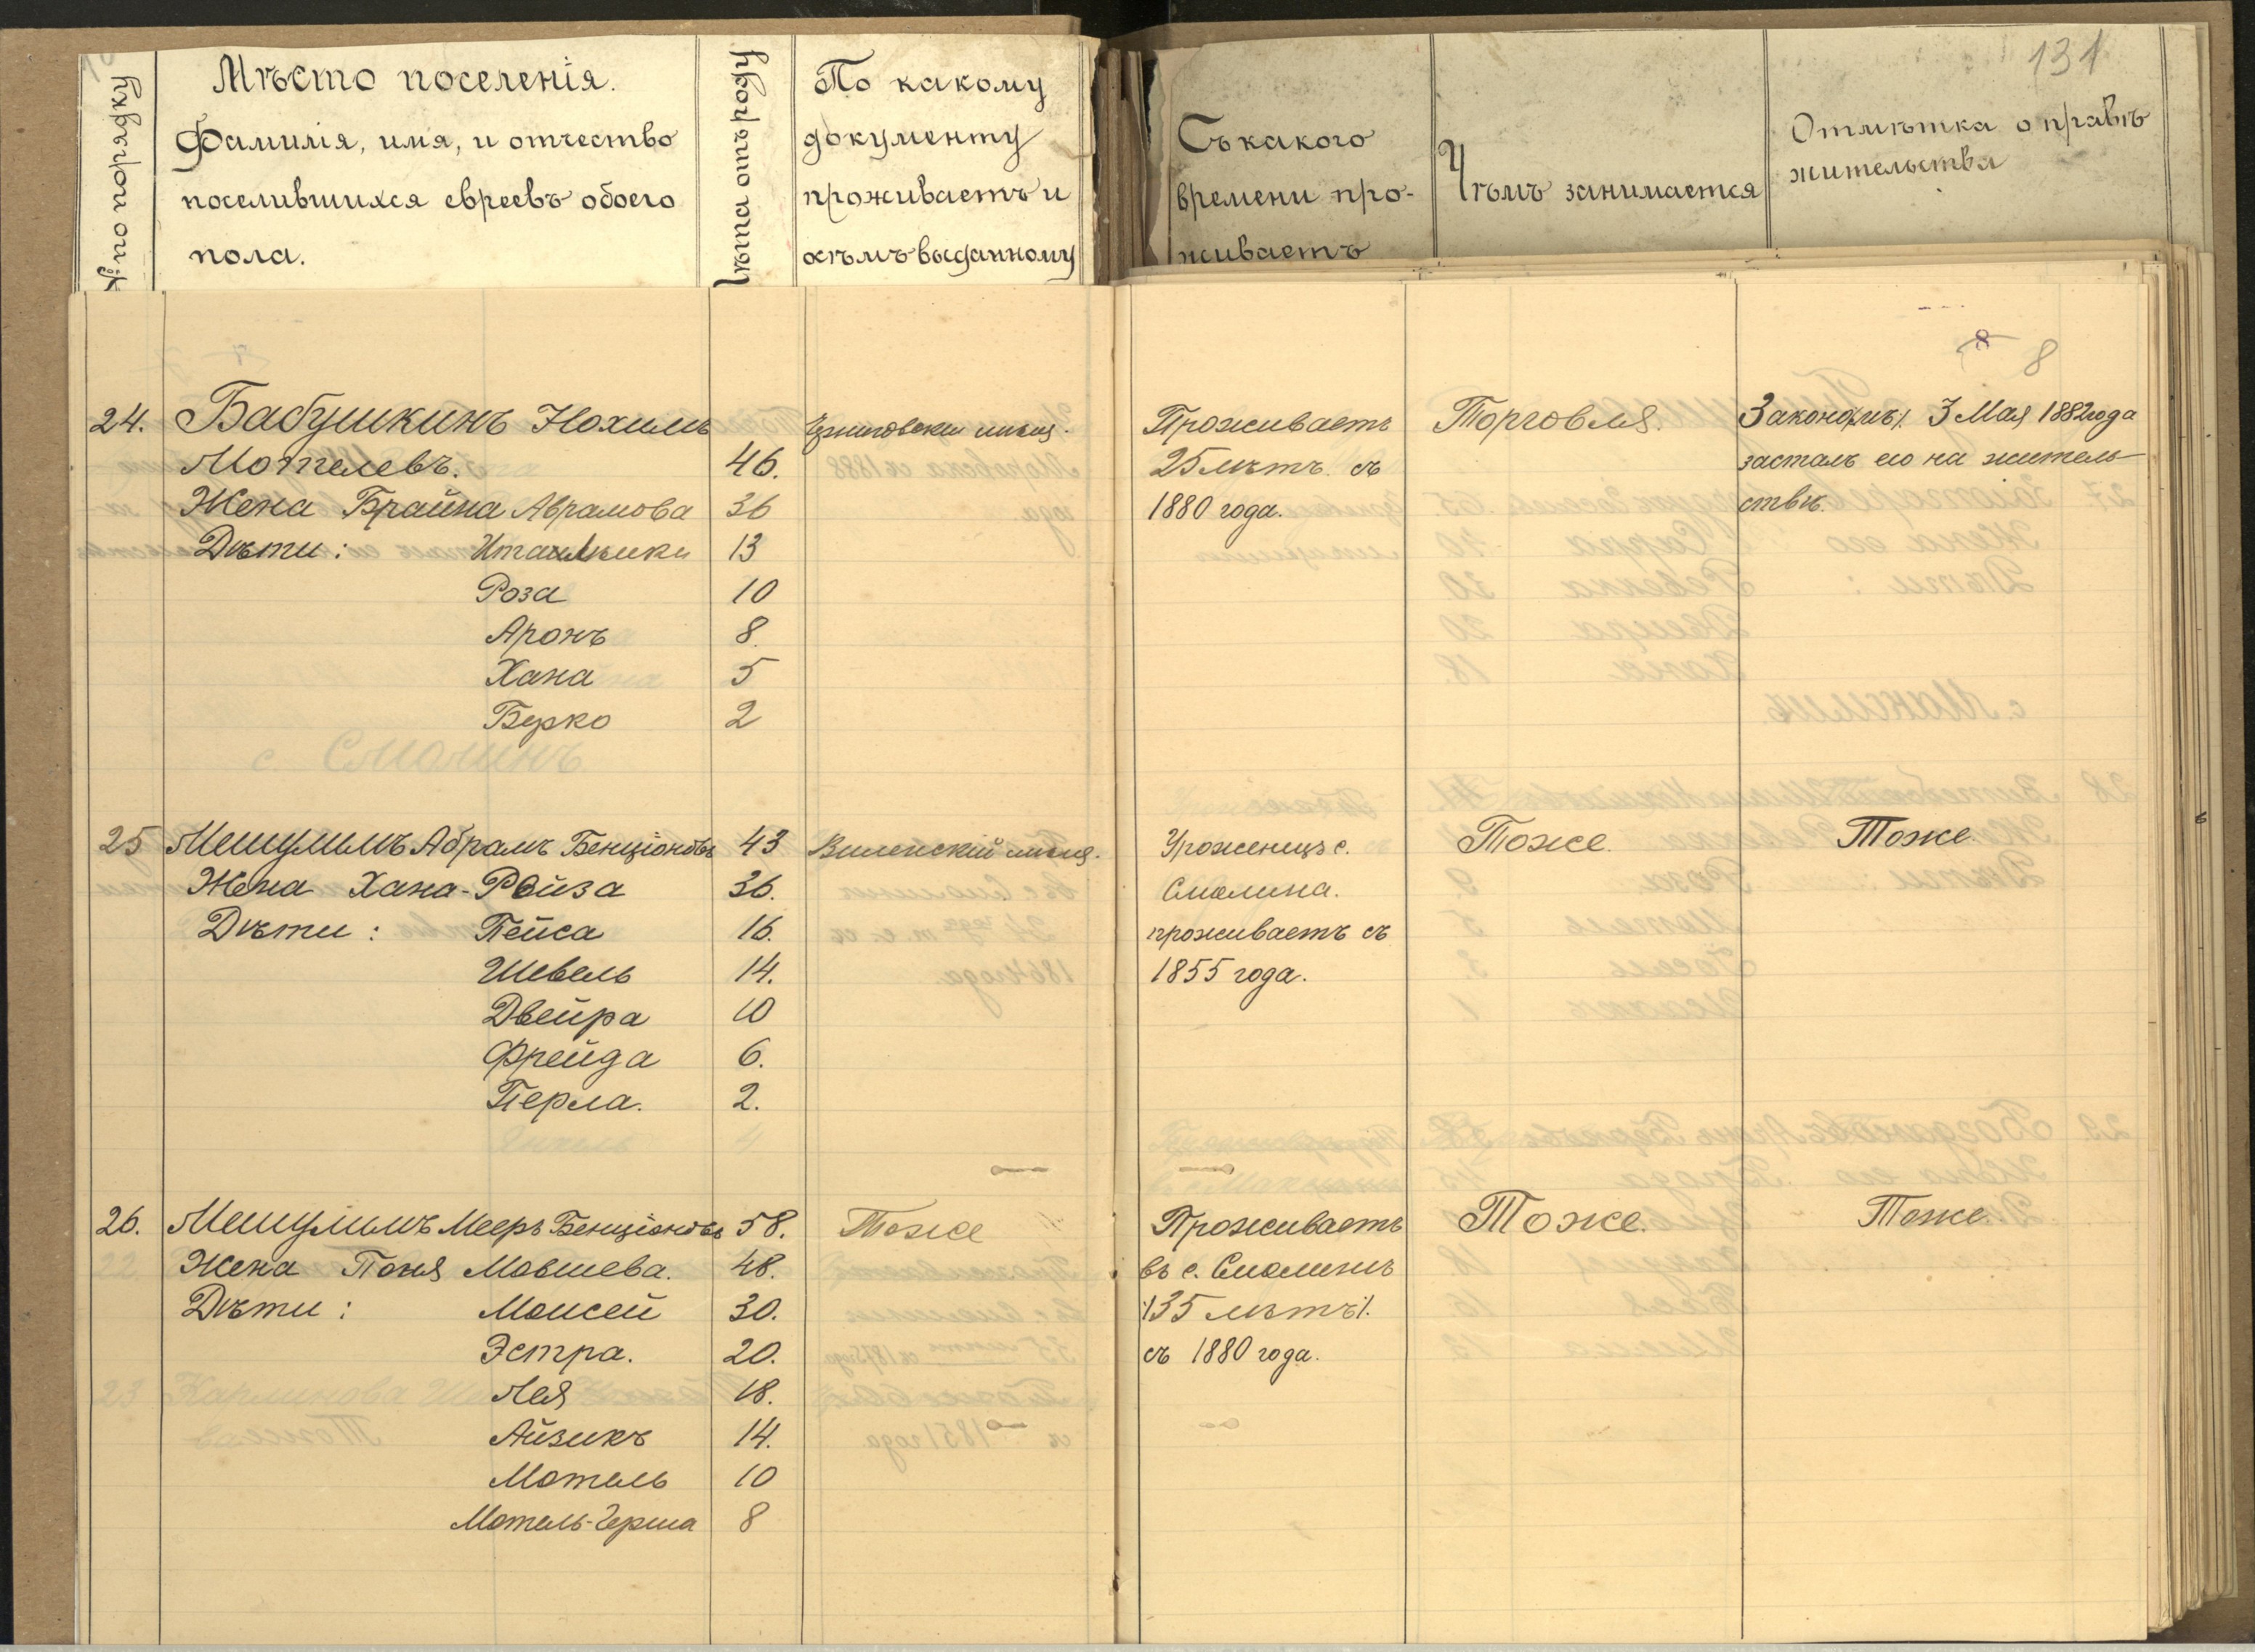 131
№ по порядку
Мѣсто поселенія.
Фамилія, имя, и отчество
поселившихся евреевъ обоего
пола.
Лѣта отъ роду
По какому
документу
проживаетъ и
кѣмъ выданному
Съ какого
времени про-
живаетъ
Чѣмъ занимается
Отмѣтка о правѣ
жительства
8
8
24. Бабушкинъ Нохимъ
Мотелевъ. 46.
Жена Брайна Абрамова 36
Дѣти: 13
Роза 10
Аронъ 8.
Хана 5
Берко 2
мѣщ.
Проживаетъ
25 лѣтъ съ
1880 года.
Торговля.
3 Мая 1882 года
засталъ его на житель-
ствѣ.
25 Мешумимъ Абрамъ Бенціоновъ 43
Жена Хана-Ройза 36.
Дѣти: Пейса 16.
Шевель 14.
Двейра 10
Фрейда 6.
Перла. 2.
Виленскій мѣщ.
Уроженецъ с.
Смолина.
проживаетъ съ
1855 года.
Тоже.
Тоже.
26. Мешумимъ Мееръ Бенціоновъ 58.
Жена Поня Мовшева. 48.
Дѣти: Моисей 30.
Эстра. 20.
Лея 18.
Айзикъ 14.
Мотель 10
Мотель-Герша 8
Тоже
Проживаетъ
въ с. Смолинѣ
/35 лѣтъ/.
съ 1880 года.
Тоже.
Тоже.